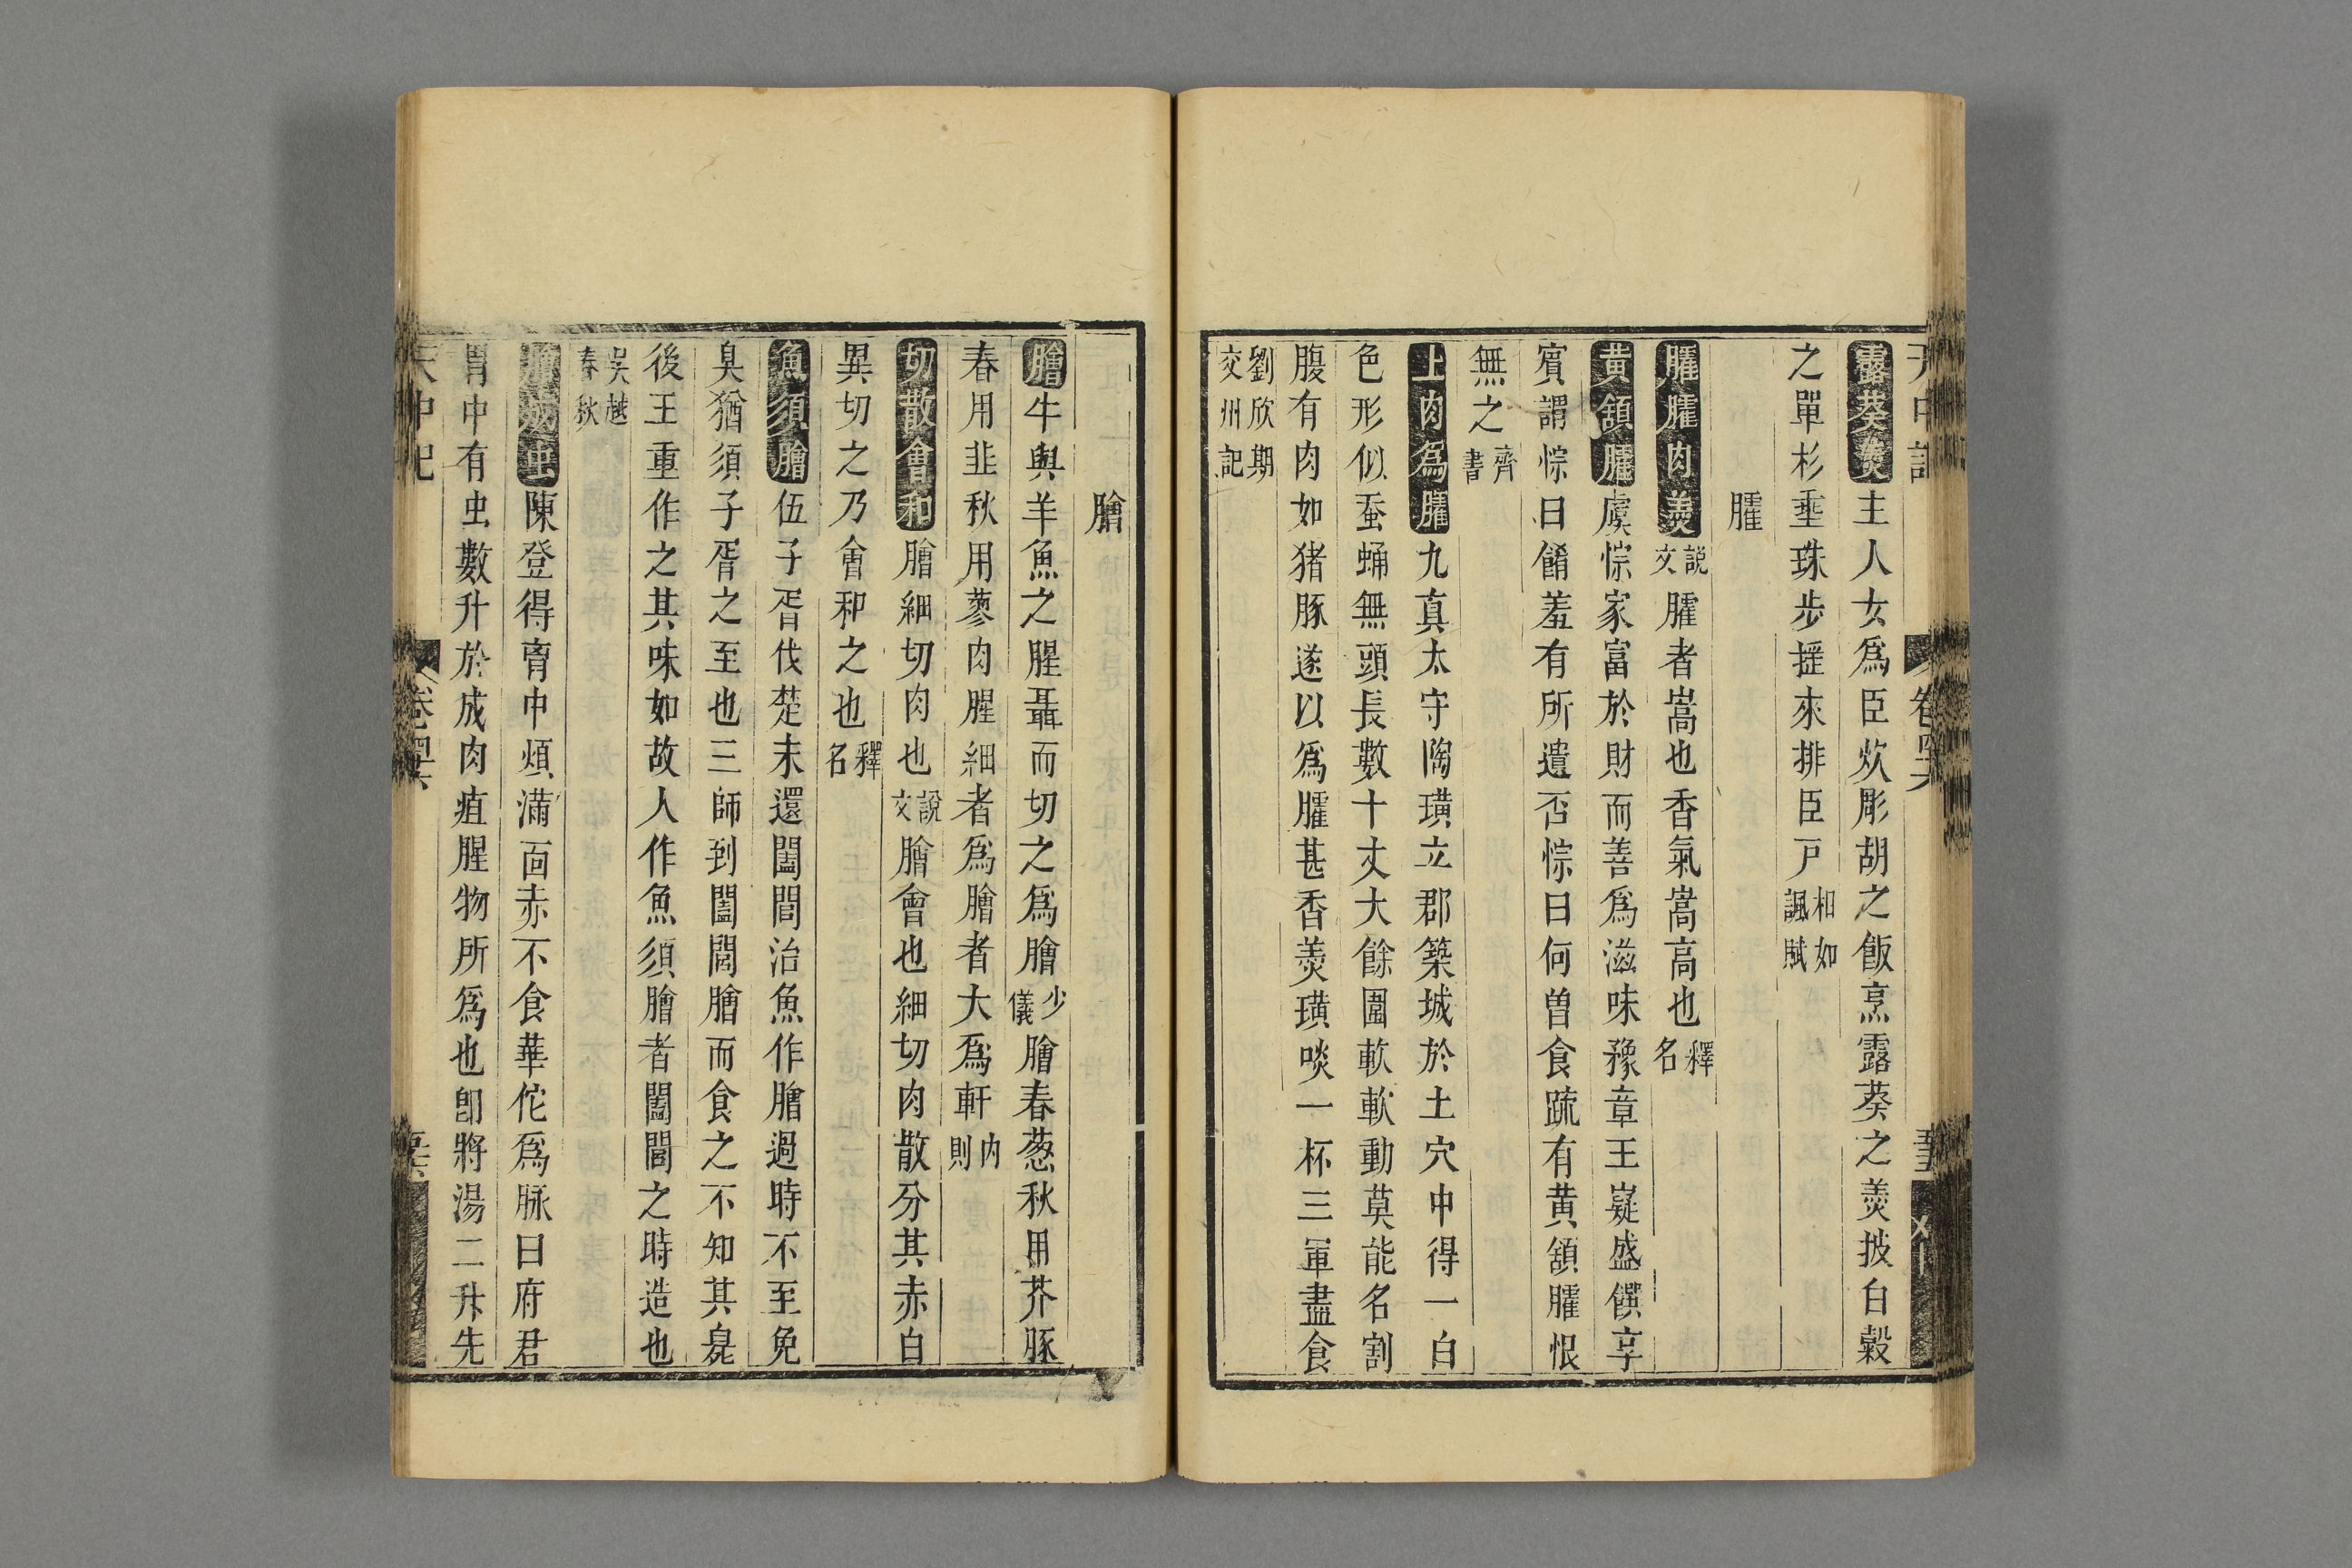 露葵羹主人女爲臣炊彫胡之飯烹露葵之羹披白縠
之單杉垂珠步搖來排臣戸相如諷賦
臛
臛臛肉羹說文臛者嵩也香氣嵩高也釋名
黃頷臛虞悰家富於財而善爲滋味豫章王嶷盛饌享
賔謂悰曰餚羞有所遺否悰曰何曽食疏有黃頷臛恨
無之齊書
土肉爲臛九真太守陶璜立郡築城於土穴中得一白
色形似蚕蛹無頭長數十丈大餘圍軟軟動莫能名割
腹有肉如猪豚遂以爲臛甚香羹璜啖一杯三軍盡食
劉欣期交州記
膾
膾牛與羊魚之腥聶而切之爲膾少儀膾春葱秋用芥豚
春用韭秋用蓼肉腥細者爲膾者大爲軒内則
切散會和膾細切肉也說文膾會也細切肉散分其赤白
異切之乃會和之也釋名
魚須膾伍子胥伐楚未還闔閭治魚作膾過時不至免
臭猶須子胥之至也三師到闔閭膾而食之不知其臰
後王重作之其味如故人作魚須膾者闔閭之時造也
吳越春秋
膾成虫陳登得育中煩滿面赤不食華佗爲脉曰府君
胃中有虫數升於成肉疽腥物所爲也卽將湯二升先
天中記
卷罒六